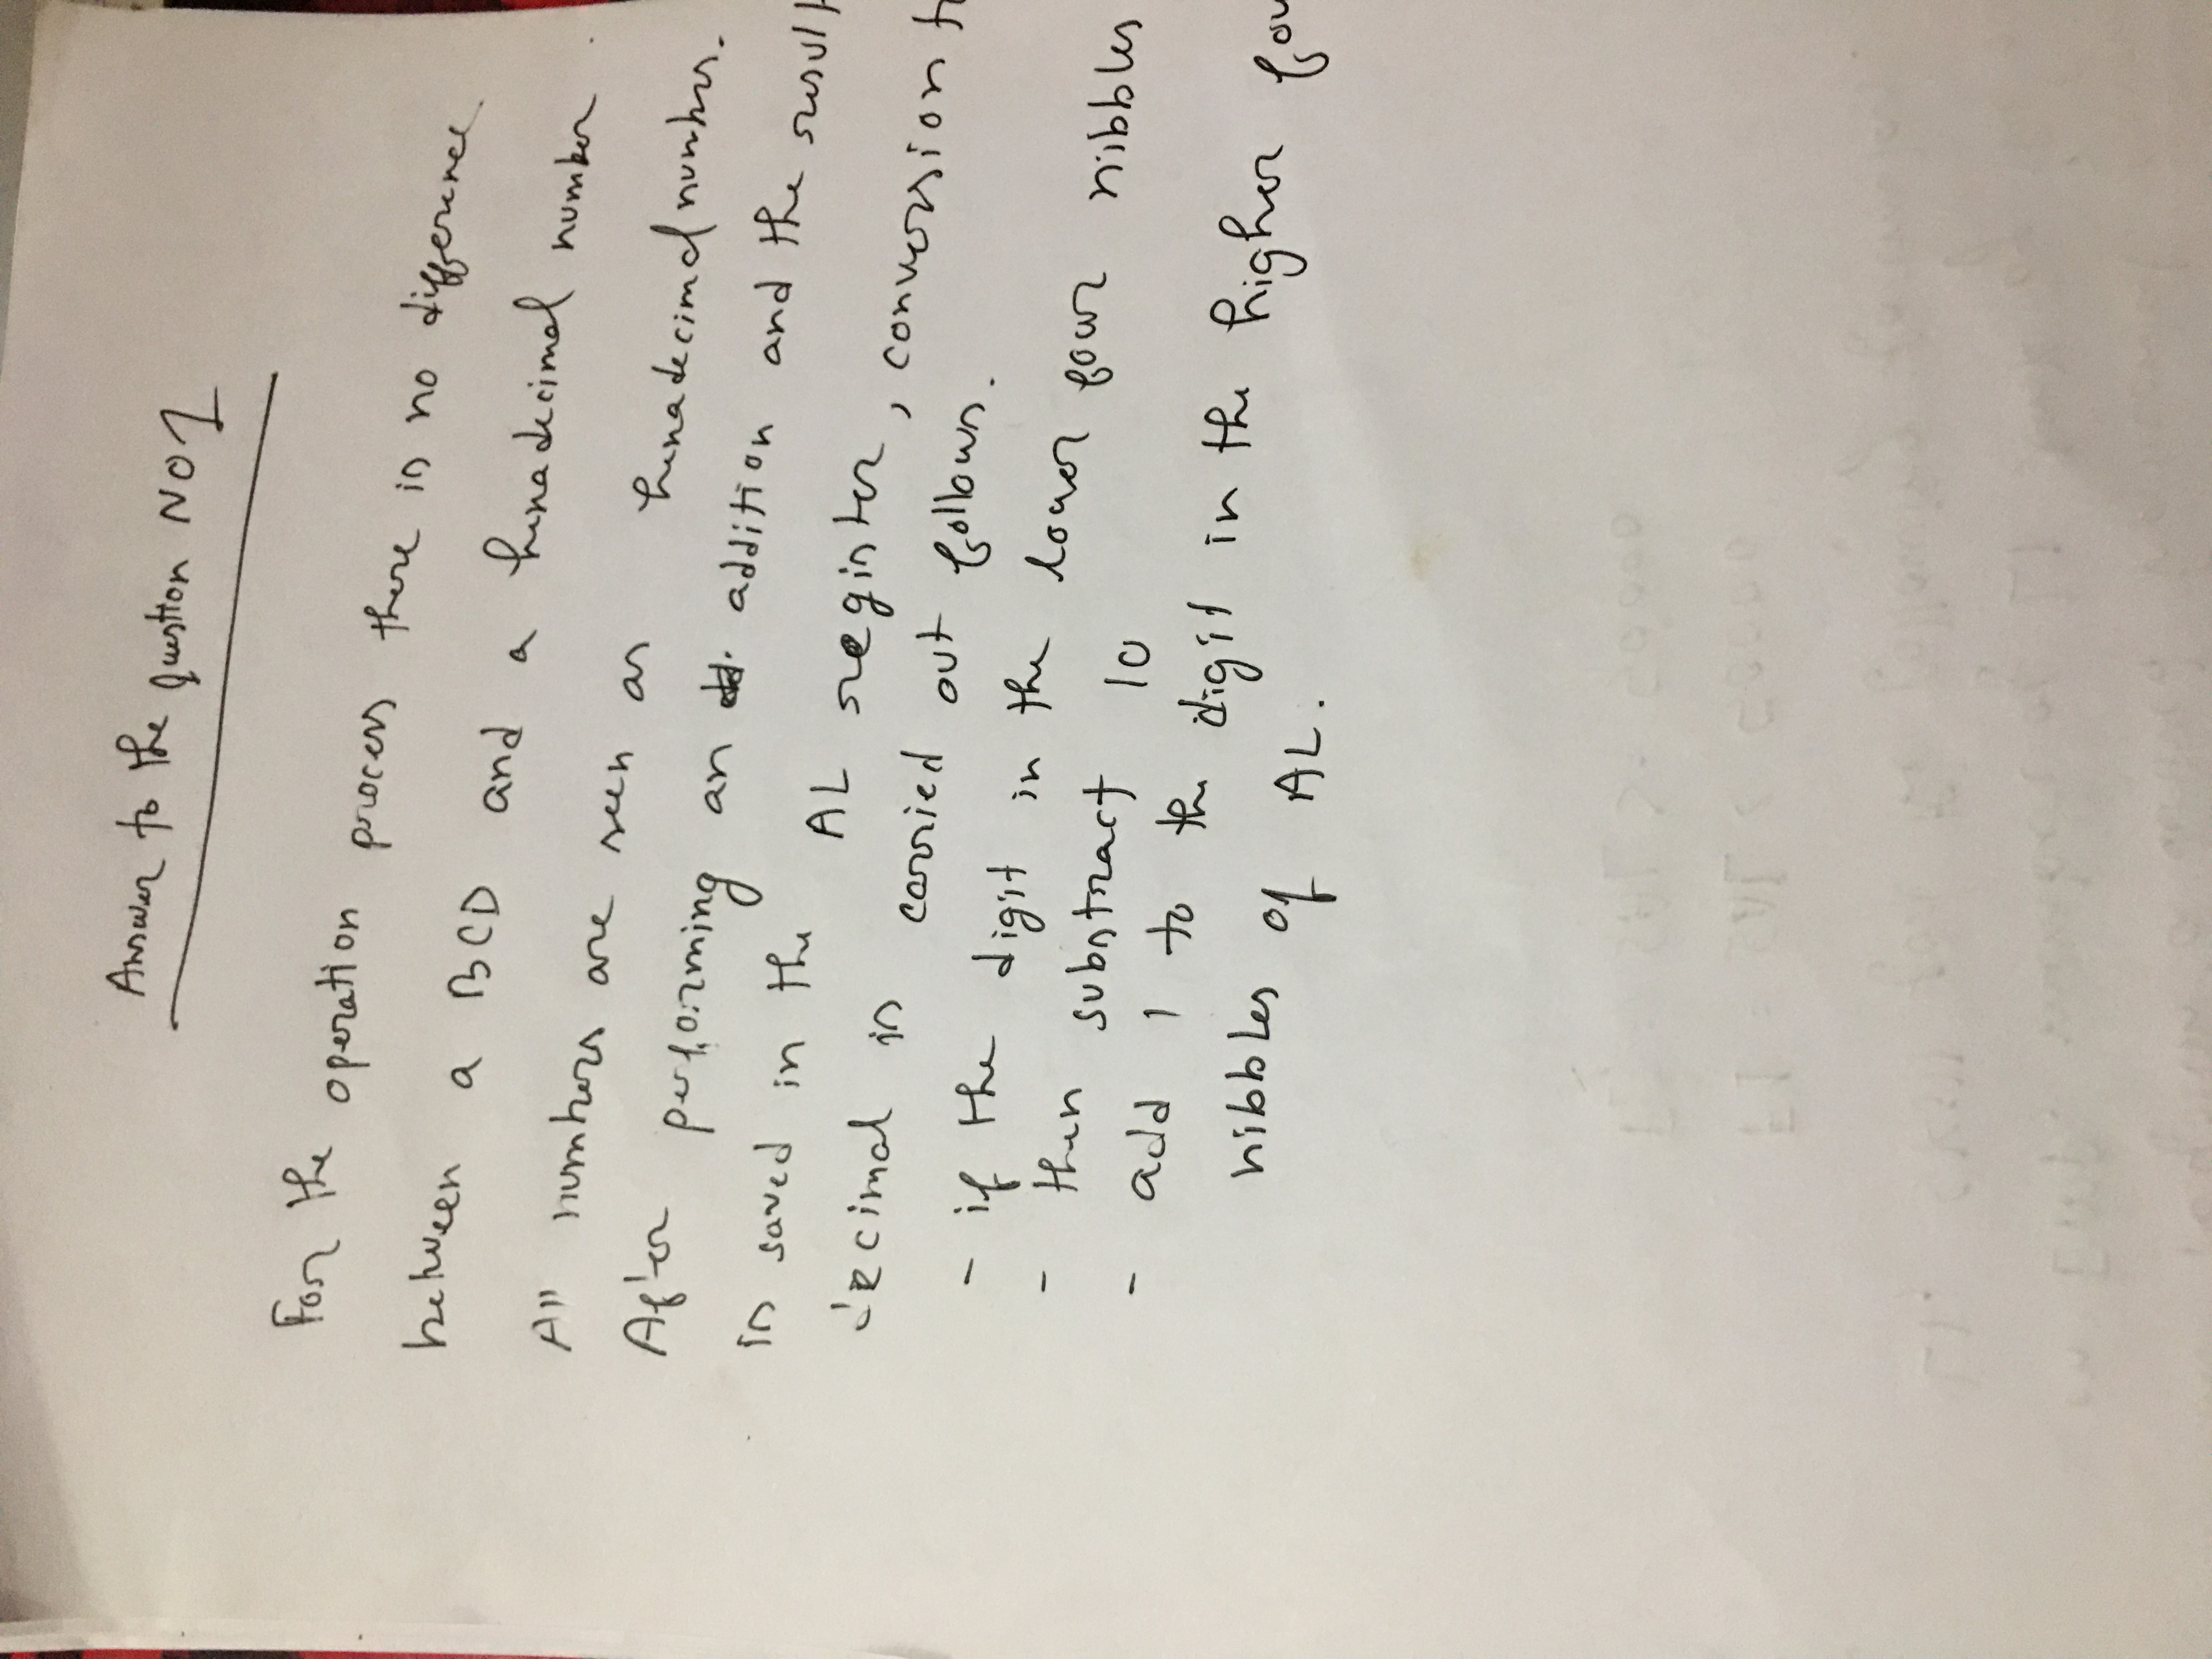 Answer to the Question NO 1
For the operation process there is no difference
between a BCD and a hexadecimal number.
All numbers are seen as hexadecimal numbers.
After performing an addition and the result
is saved in the AL register, conversion to
decimal is carried out follows.
- if the digit in the lower four nibbles
- then substract 10
- add 1 to the digit in the higher fou
nibbles of AL.